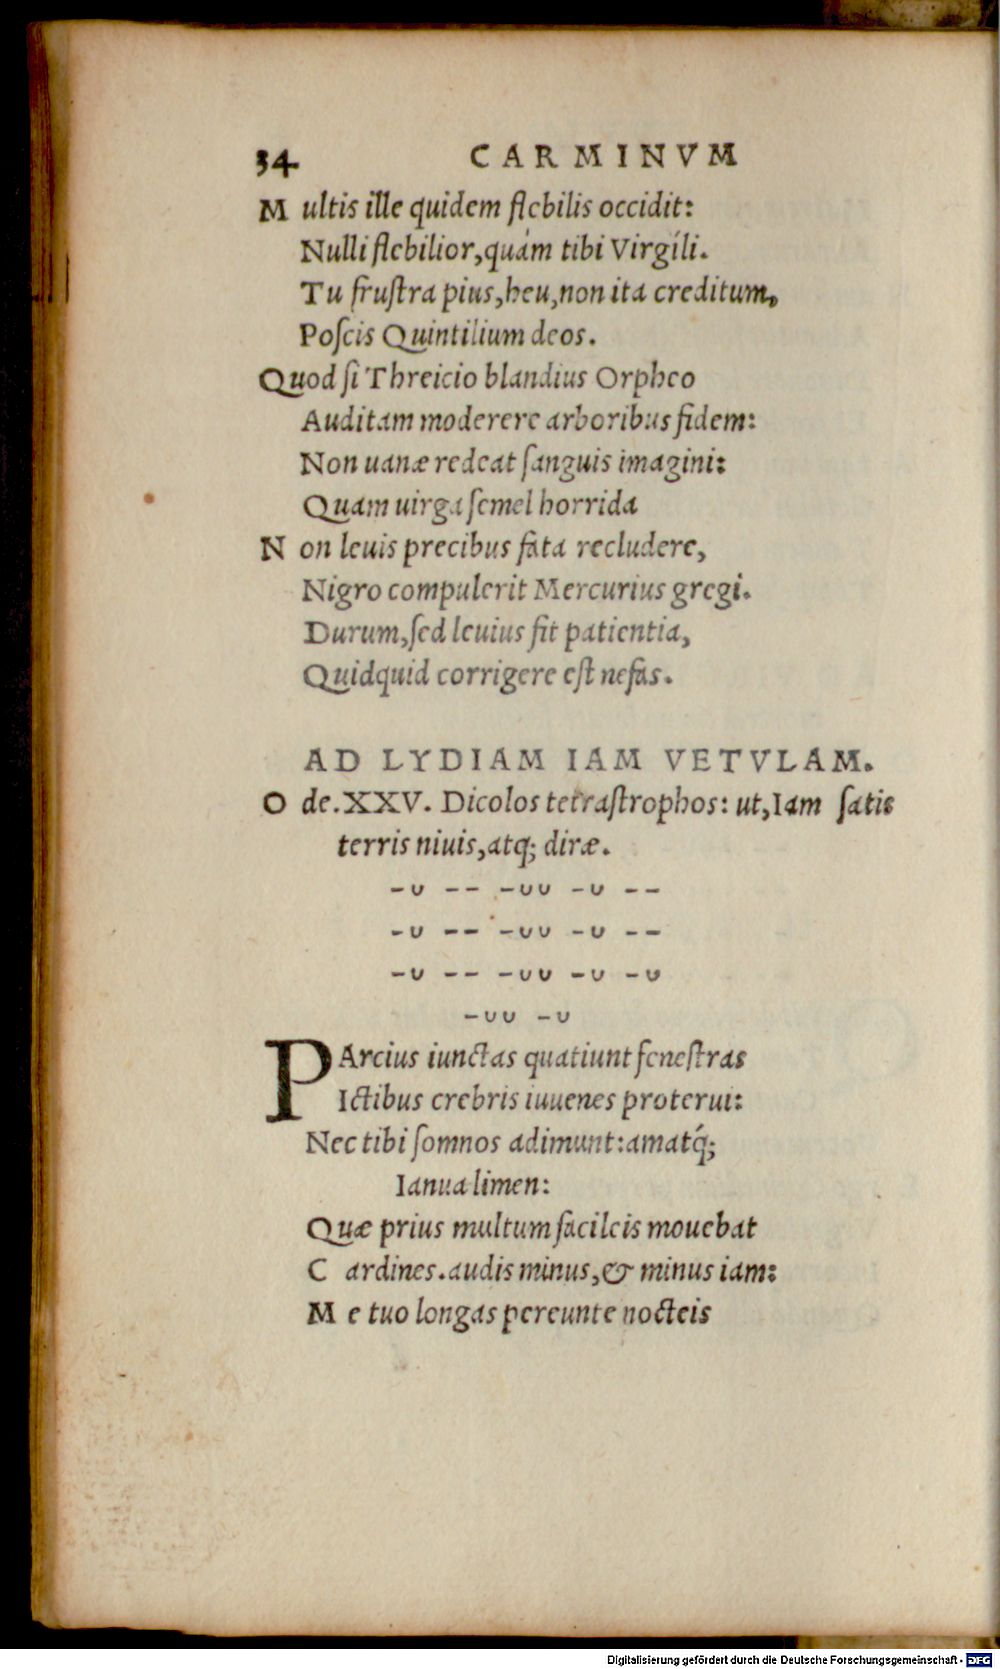 34 CARMINVM
M ultis ille quidem flebilis occidit:
Nulli flebilior, quám tibi Virgíli.
Tu fruſtra pius, heu, non ita creditum,
Poſcis Quintilium deos.
Quod ſi Threicio blandius Orpheo
Auditam moderere arboribus fidem:
Non uanæ redeat ſanguis imagini:
Quam uirga ſemel horrida
N on leuis precibus fata recludere,
Nigro compulerit Mercurius gregi.
Durum, ſed leuius fit patientia,
Quidquid corrigere eſt nefas.
AD LYDIAM IAM VETVLAM.
O de. XXV. Dicolos tetraſtrophos: ut, Iam ſatis
terris niuis, atq; diræ.
–∪ –– –∪∪ –∪ ––
–∪ –– –∪∪ –∪ ––
–∪ –– –∪∪ –∪ –∪
–∪∪ –∪
PArcius iunctas quatiunt feneſtras
Ictibus crebris iuuenes proterui:
Nec tibi ſomnos adimunt: amatq́;
Ianua limen:
Quæ prius multum facileis mouebat
C ardines. audis minus, & minus iam:
M e tuo longas pereunte nocteis
Digitalisierung gefördert durch die Deutsche Forschungsgemeinschaft - DFG